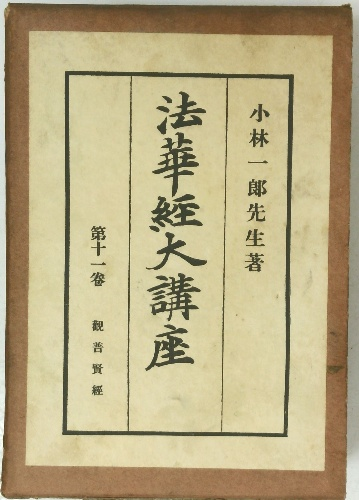 小林一郎先生著
法華経大講座
第十一卷 觀普賢經